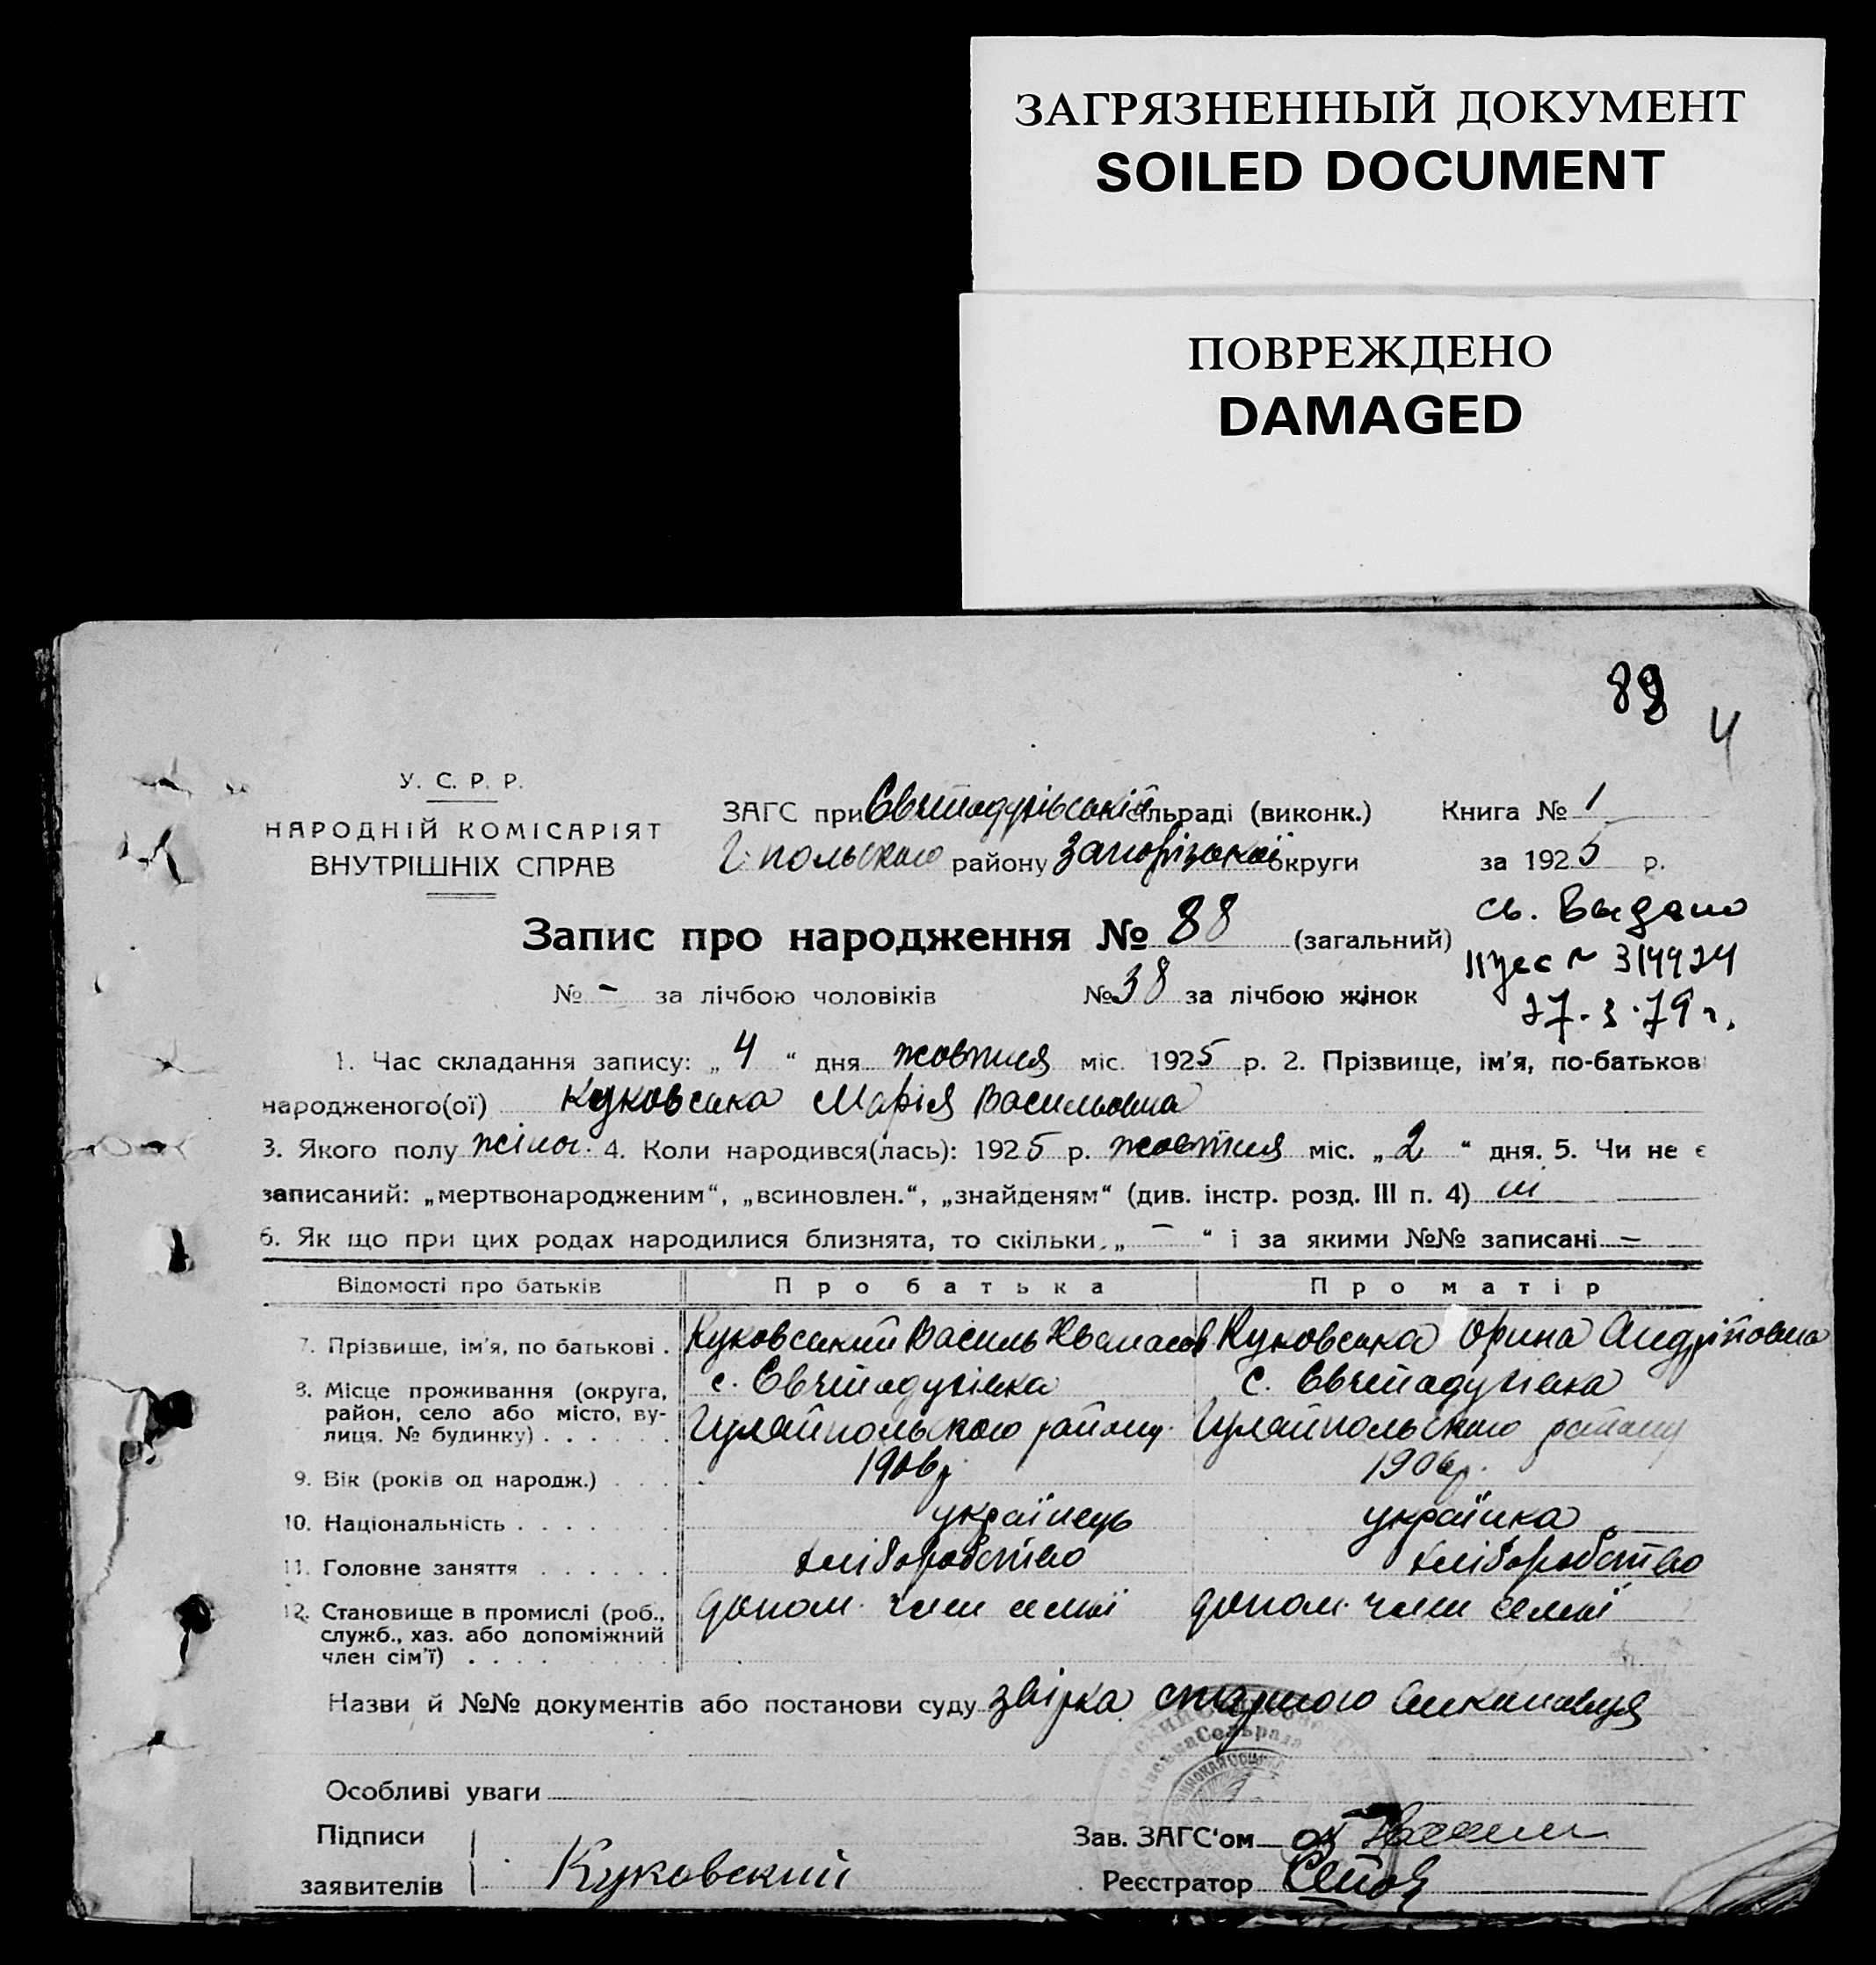 ЗАГРЯЗНЕННЫЙ ДОКУМЕНТ
SOILED DOCUMENT
ПОВРЕЖДЕНО
DAMAGED
88
4
У. С. Р. Р.
НАРОДНІЙ КОМІСАРІЯТ
ВНУТРІШНІХ СПРАВ
ЗАГС при сільраді (виконк.)
Г. польского району Запорізької округи
Книга № 1
за 1925 р.
Запис про народження № 88 (загальний)
№ - за лічбою чоловіків № 38 за лічбою жінок
св. Выдано
314924
27.3.79 г.
1. Час складання запису: „4“ дня жовтня міс. 1925 р. 2. Прізвище, ім'я, по-батькові
народженого(ої) Куковська Марія Васильовна
3. Якого полу жіноч. 4. Коли народився(лась): 1925 р. жовтня міс. „2“ дня. 5. Чи не є
записаний: „мертвонародженим“, „всиновлен.“, „знайденям“ (див. інстр. розд. III п. 4) ні
6. Як що при цих родах народилися близнята, то скільки „-“ і за якими №№ записані -
Відомості про батьків Про батька Про матір
7. Прізвище, ім'я, по батькові . Куковський Василь Куковська Орина Андріївна
8. Місце проживання (округа, район, село або місто, вулиця, № будинку) . . . . . .
с. с.
Гуляйпольского району Гуляйпольского району
9. Вік (років од народж.) . . . 1906 р. 1906 р.
10. Національність . . . . . . . українець українка
11. Головне заняття . . . . . . хліборобство хліборобство
12. Становище в промислі (роб., служб., хаз. або допоміжний член сім'ї) . . . . . . . . . допом. член семьї допом. член семьї
Назви й №№ документів або постанови суду звірка старого
Особливі уваги
Підписи
заявителів Куковский
Зав. ЗАГС'ом
Реєстратор